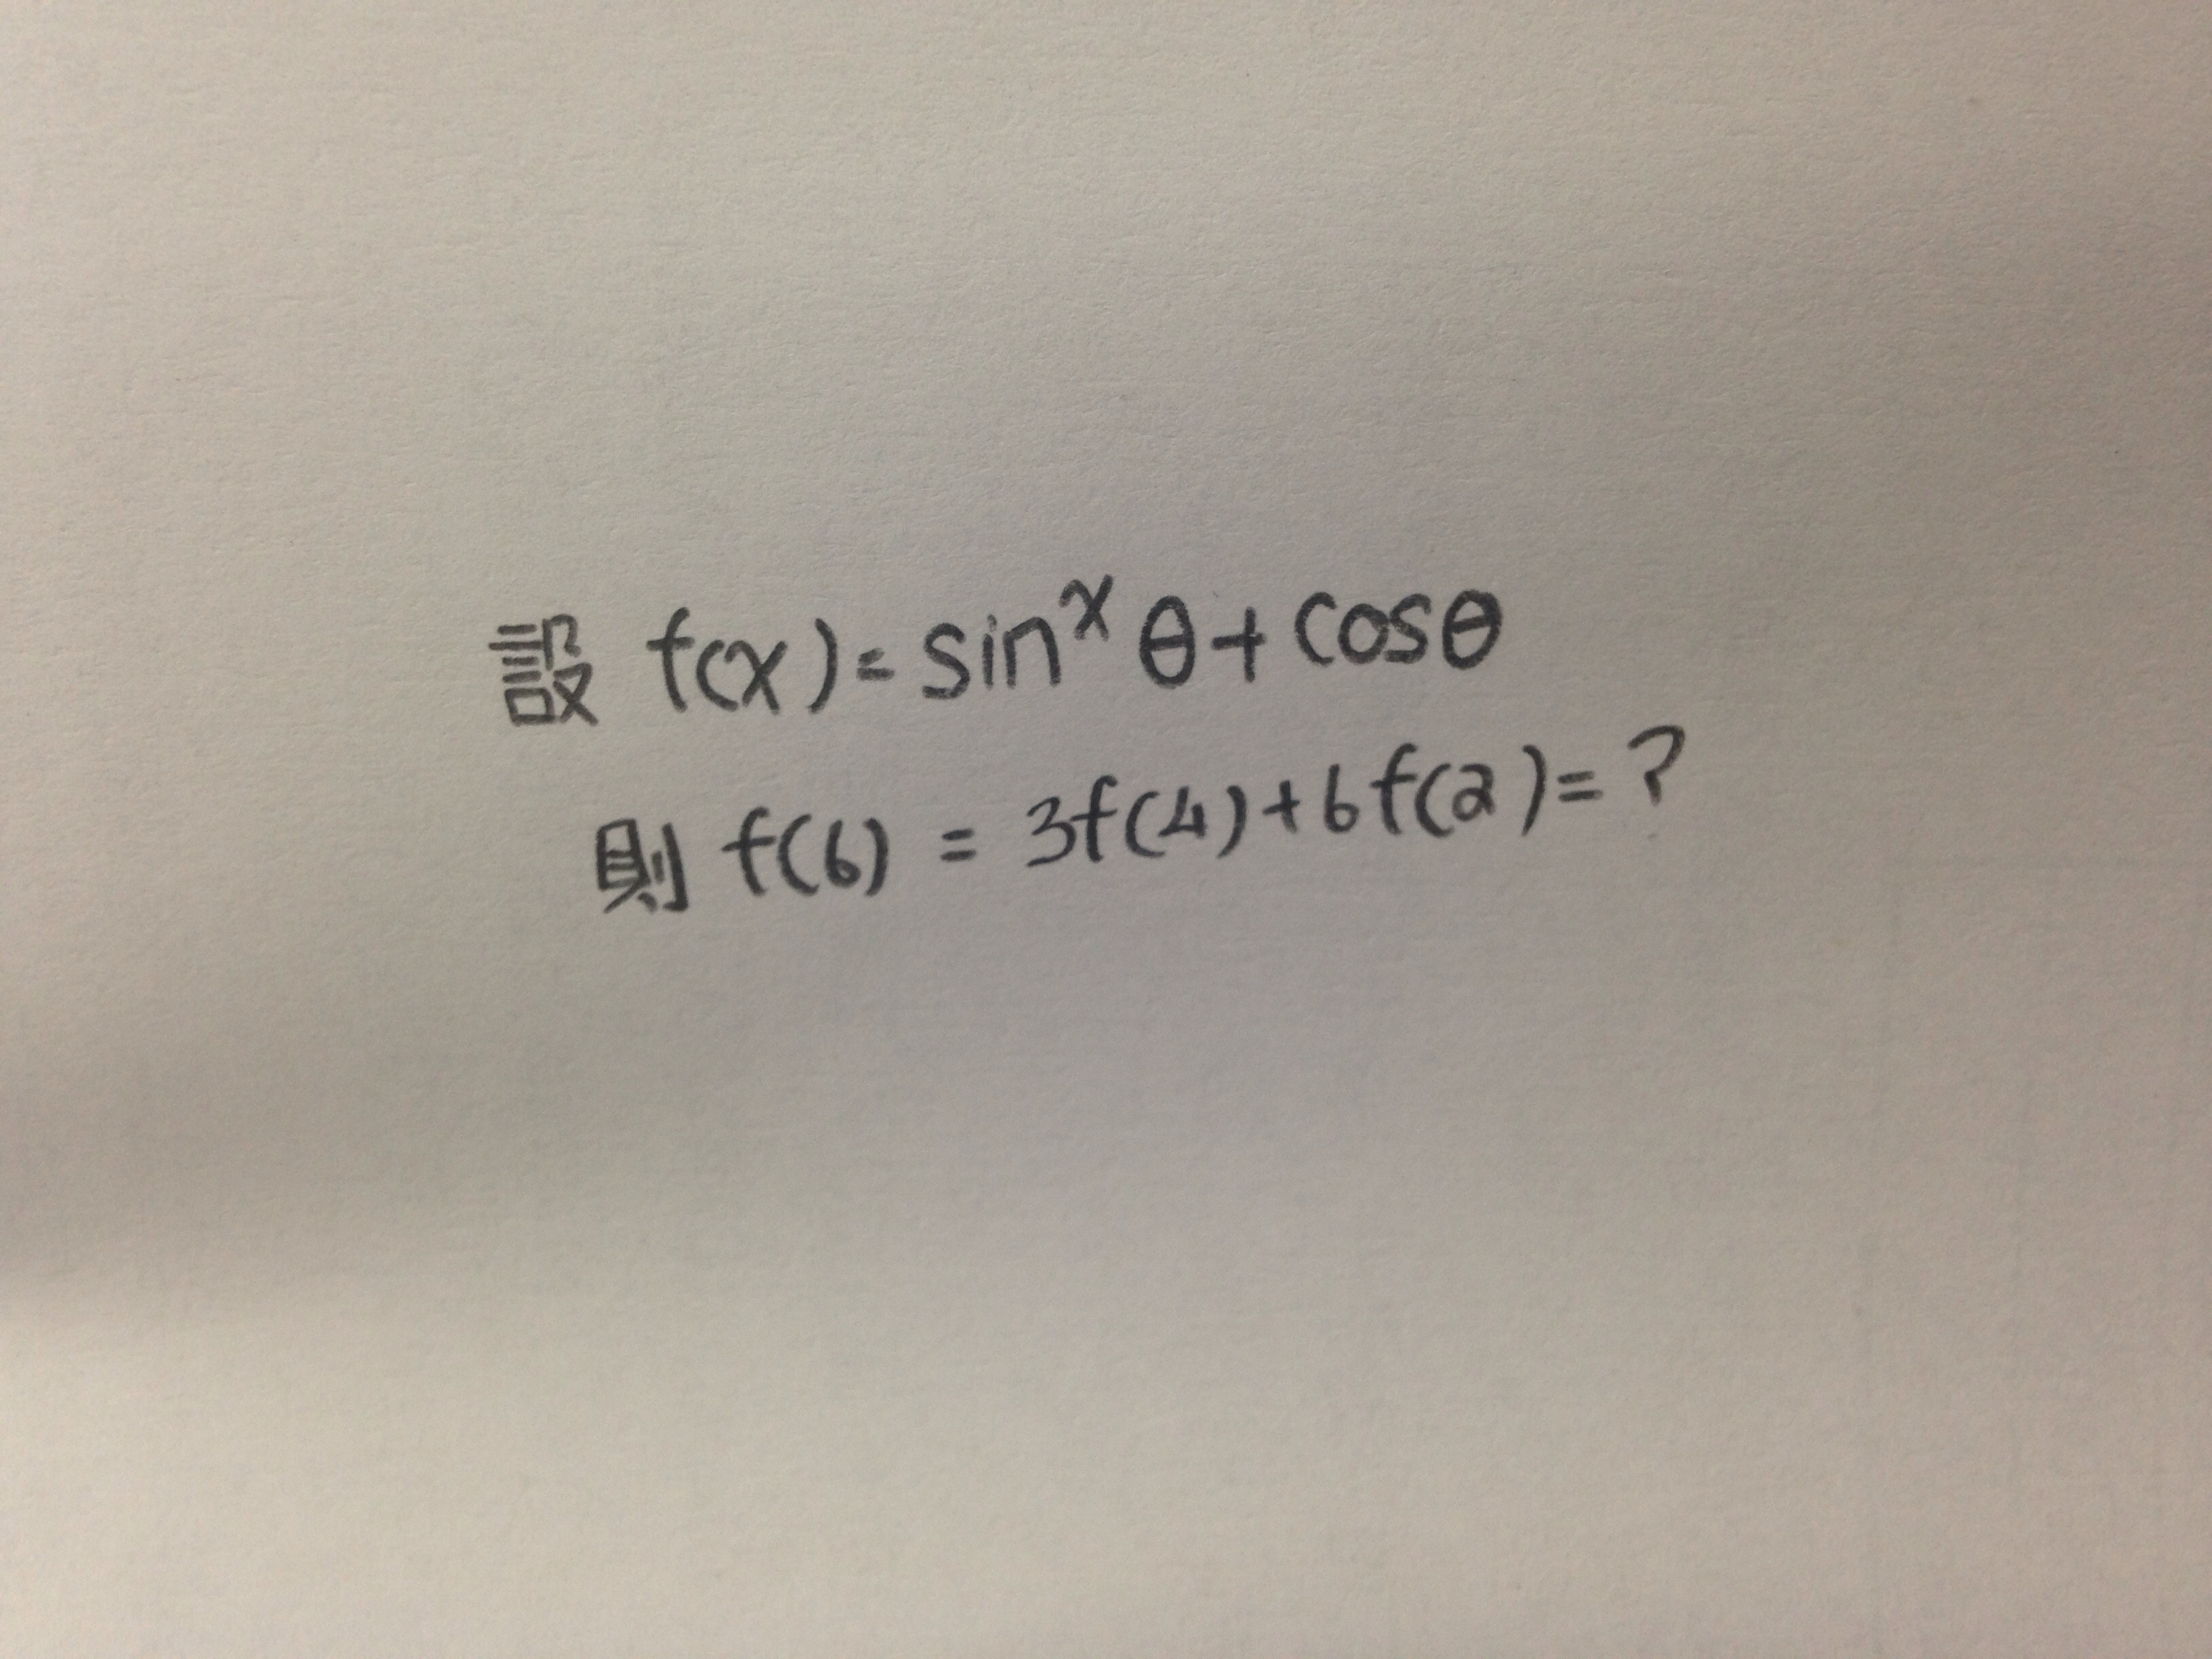 設 f(x)= sinˣ θ+ cosθ
則 f(6) = 3f(4)+6f(2)= ?